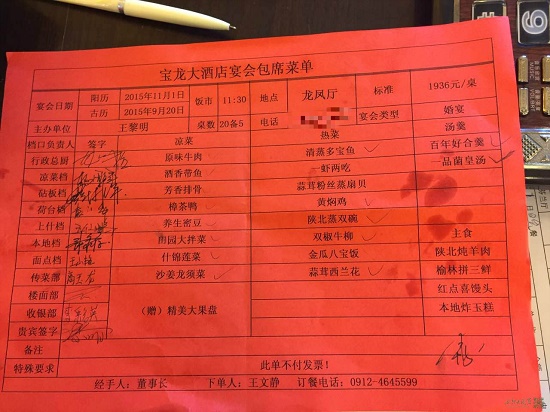 宝龙大酒店宴会包席菜单
宴会日期 阳历 2015年11月1日 饭市 11:30 地点 龙凤厅 标准 1936元/桌
古历 2015年9月20日
主办单位 王黎明 桌数 20备5 电话 宴会类型 婚宴
档口负责人 签字 凉菜 热菜 汤羹
行政总厨 原味牛肉 清蒸多宝鱼 百年好合羹
凉菜档 酒香带鱼 一虾两吃 一品菌皇汤
砧板档 芳香排骨 蒜茸粉丝蒸扇贝
荷台档 樟茶鸭 黄焖鸡
上什档 养生蜜豆 陕北蒸双碗
本地档 田园大拌菜 双椒牛柳 主食
面点档 什锦莲菜 金瓜八宝饭 陕北炖羊肉
传菜部 沙姜龙须菜 蒜茸西兰花 榆林拼三鲜
楼面部 红点喜馒头
收银部 (赠)精美大果盘 本地炸玉糕
贵宾签字
备注
特殊要求 此单不付发票!
经手人:董事长 下单人:王文静 订餐电话:0912-4645599